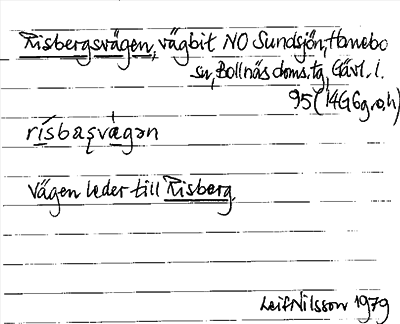 Risbergsvägen, vägbit NO Sundsjön, Hanebo
sn, Bollnäs doms.tg, Gävl. l.
95 (14G6g,o,h)
rísbaʂvä̀gən
Vägen leder till Risberg.
Leif Nilsson 1979